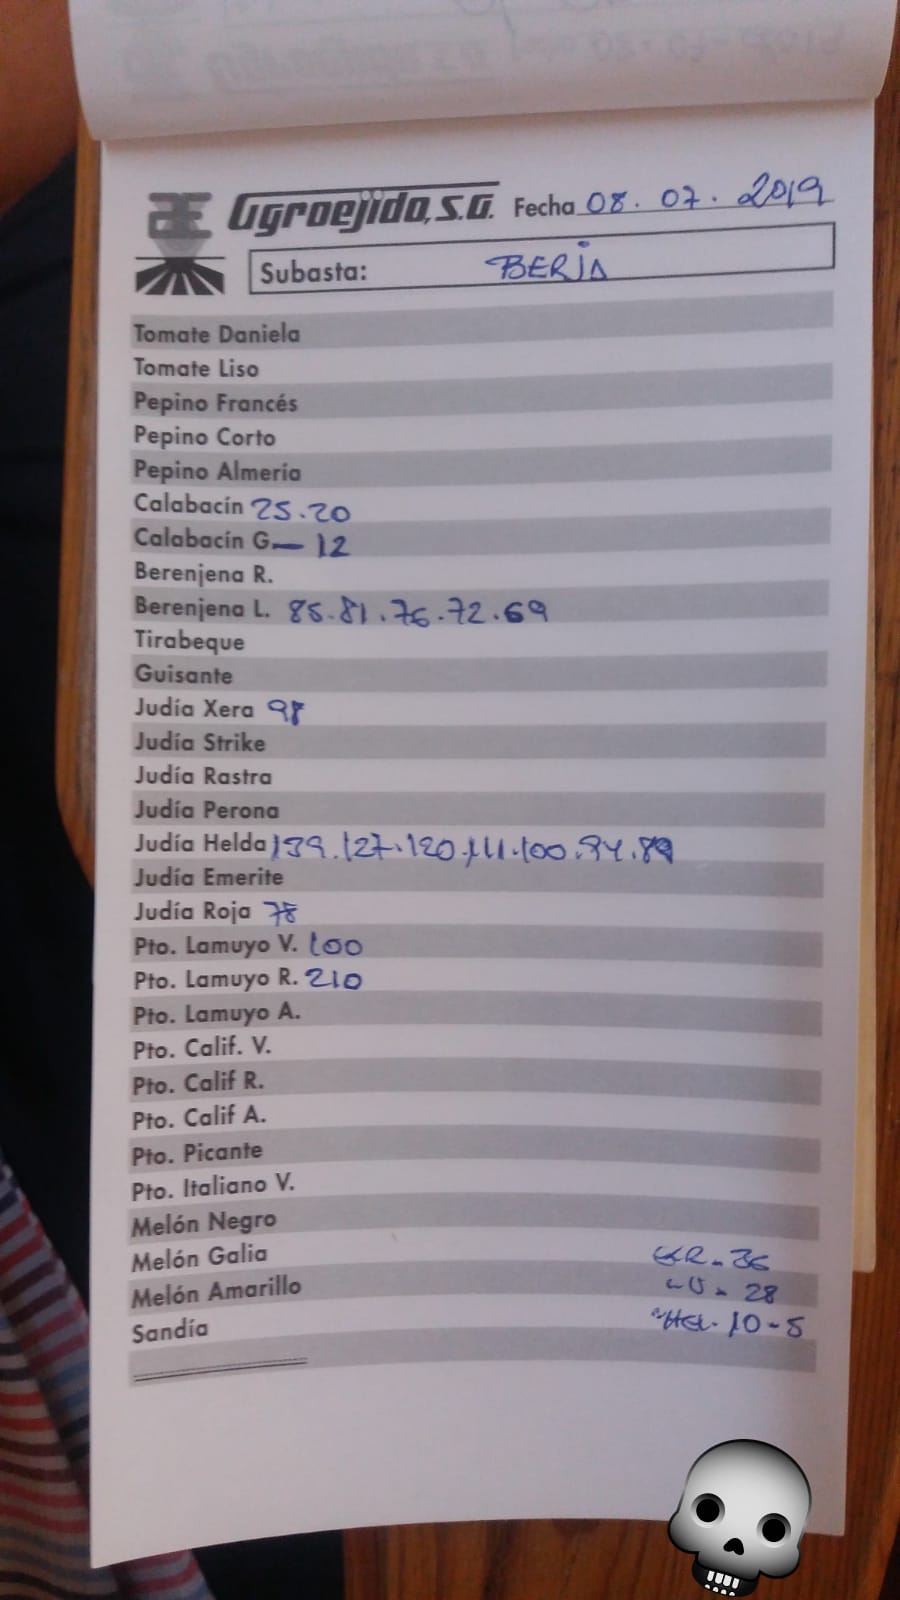 Agroejido, S.A. Fecha 08.07.2019
Subasta: BERJA
Tomate Daniela
Tomate Liso
Pepino Francés
Pepino Corto
Pepino Almería
Calabacín 25.20
Calabacín G— 12
Berenjena R.
Berenjena L. 85.81.76.72.69
Tirabeque
Guisante
Judía Xera 98
Judía Strike
Judía Rastra
Judía Perona
Judía Helda 139.127.120.111.100.94.89
Judía Emerite
Judía Roja 78
Pto. Lamuyo V. 100
Pto. Lamuyo R. 210
Pto. Lamuyo A.
Pto. Calif. V.
Pto. Calif R.
Pto. Calif A.
Pto. Picante
Pto. Italiano V.
Melón Negro
Melón Galia 36
Melón Amarillo 28
Sandía 10-5